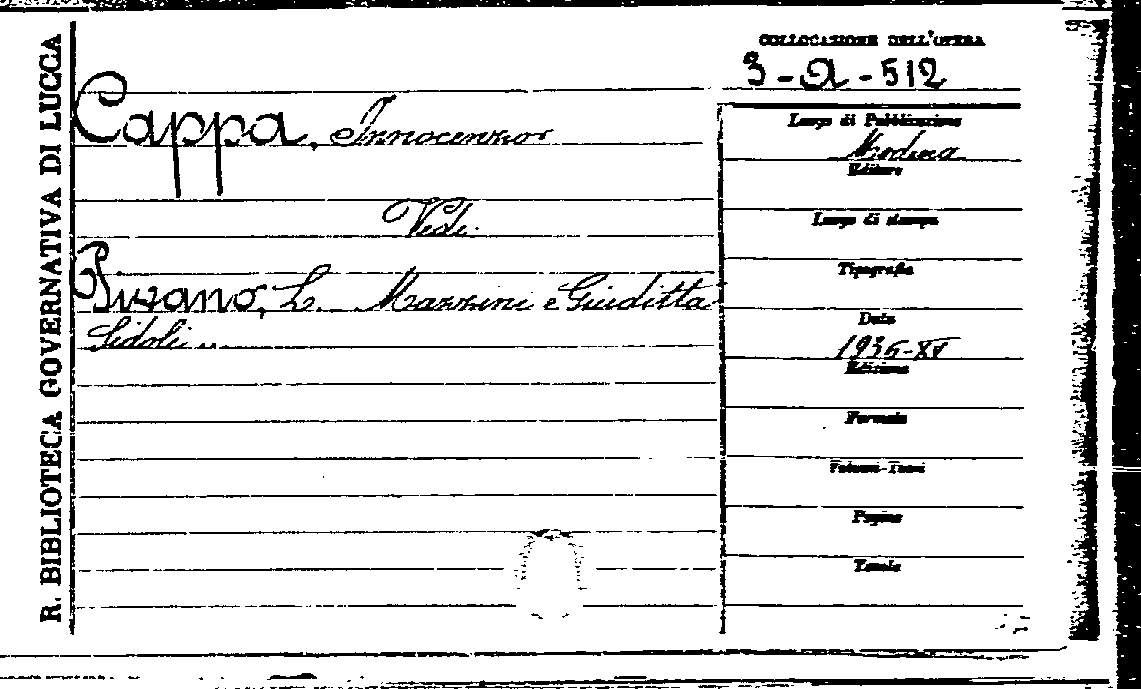 R. BIBLIOTECA GOVERNATIVA DI LUCCA
COLLOCAZIONE DELL'OPERA
3-A-512
Cappa, Innocenzo
Vedi
Pusano, L. Mazzini e Giuditta
Sidoli ...
Luogo di Pubblicazione
Modena
Editore
Luogo di stampa
Tipografia
Data
1936-XV
Edizione
Formato
Volumi-Tomi
Pagine
Tavole